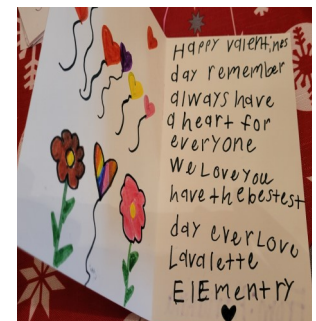 Happy valentines
day remember
always have
a heart for
everyone
We Love you
have the bestest
day ever Love
Lavalette
Elementry